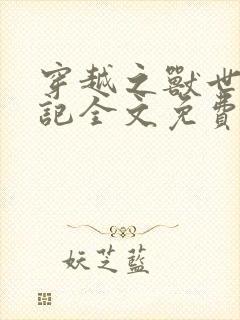 穿越之獸世
記全文免費
妖芝藍